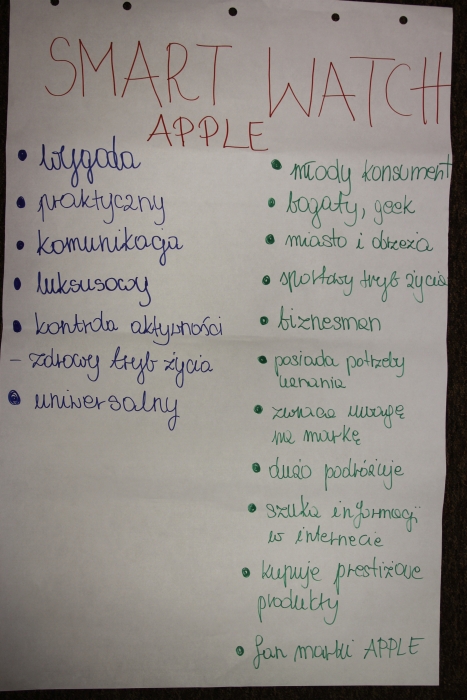 SMART WATCH
APPLE
• wygoda
• praktyczny
• komunikacja
• luksusowy
• kontrola aktywności
– zdrowy tryb życia
• uniwersalny
• młody konsument
• bogaty, geek
• miasto i obrzeża
• sportowy tryb życia
• biznesmen
• posiada potrzeby
uznania
• zwraca uwagę
na markę
• dużo podróżuje
• szuka informacji
w internecie
• kupuje prestiżowe
produkty
• fan marki APPLE